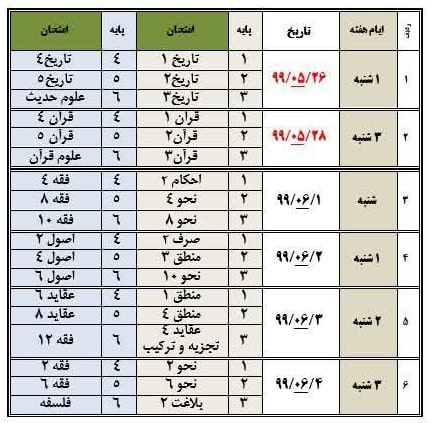 ردیف ایام هفته تاریخ پایه امتحان پایه امتحان
۱ ۱ شنبه ۹۹/۰۵/۲۶ ۱ تاریخ ۱ ۴ تاریخ۴
۲ تاریخ۲ ۵ تاریخ۵
۳ تاریخ۳ ۶ علوم حدیث
۲ ۳ شنبه ۹۹/۰۵/۲۸ ۱ قرآن ۱ ۴ قرآن ۴
۲ قرآن۲ ۵ قرآن ۵
۳ قرآن۳ ۶ علوم قرآن
۳ شنبه ۹۹/۰۶/۱ ۱ احکام ۲ ۴ فقه ۴
۲ نحو ۴ ۵ فقه ۸
۳ نحو ۸ ۶ فقه ۱۰
۴ ۱ شنبه ۹۹/۰۶/۲ ۱ صرف ۲ ۴ اصول ۲
۲ منطق ۳ ۵ اصول ۴
۳ نحو ۱۰ ۶ اصول ۶
۵ ۲ شنبه ۹۹/۰۶/۳ ۱ منطق ۱ ۴ عقاید ۶
۲ منطق ۴ ۵ عقاید ۸
۳ عقاید ۴ ۶ فقه ۱۲
تجزیه و ترکیب
۶ ۳ شنبه ۹۹/۰۶/۴ ۱ نحو ۲ ۴ فقه ۲
۲ نحو ۶ ۵ فقه ۶
۳ بلاغت ۲ ۶ فلسفه